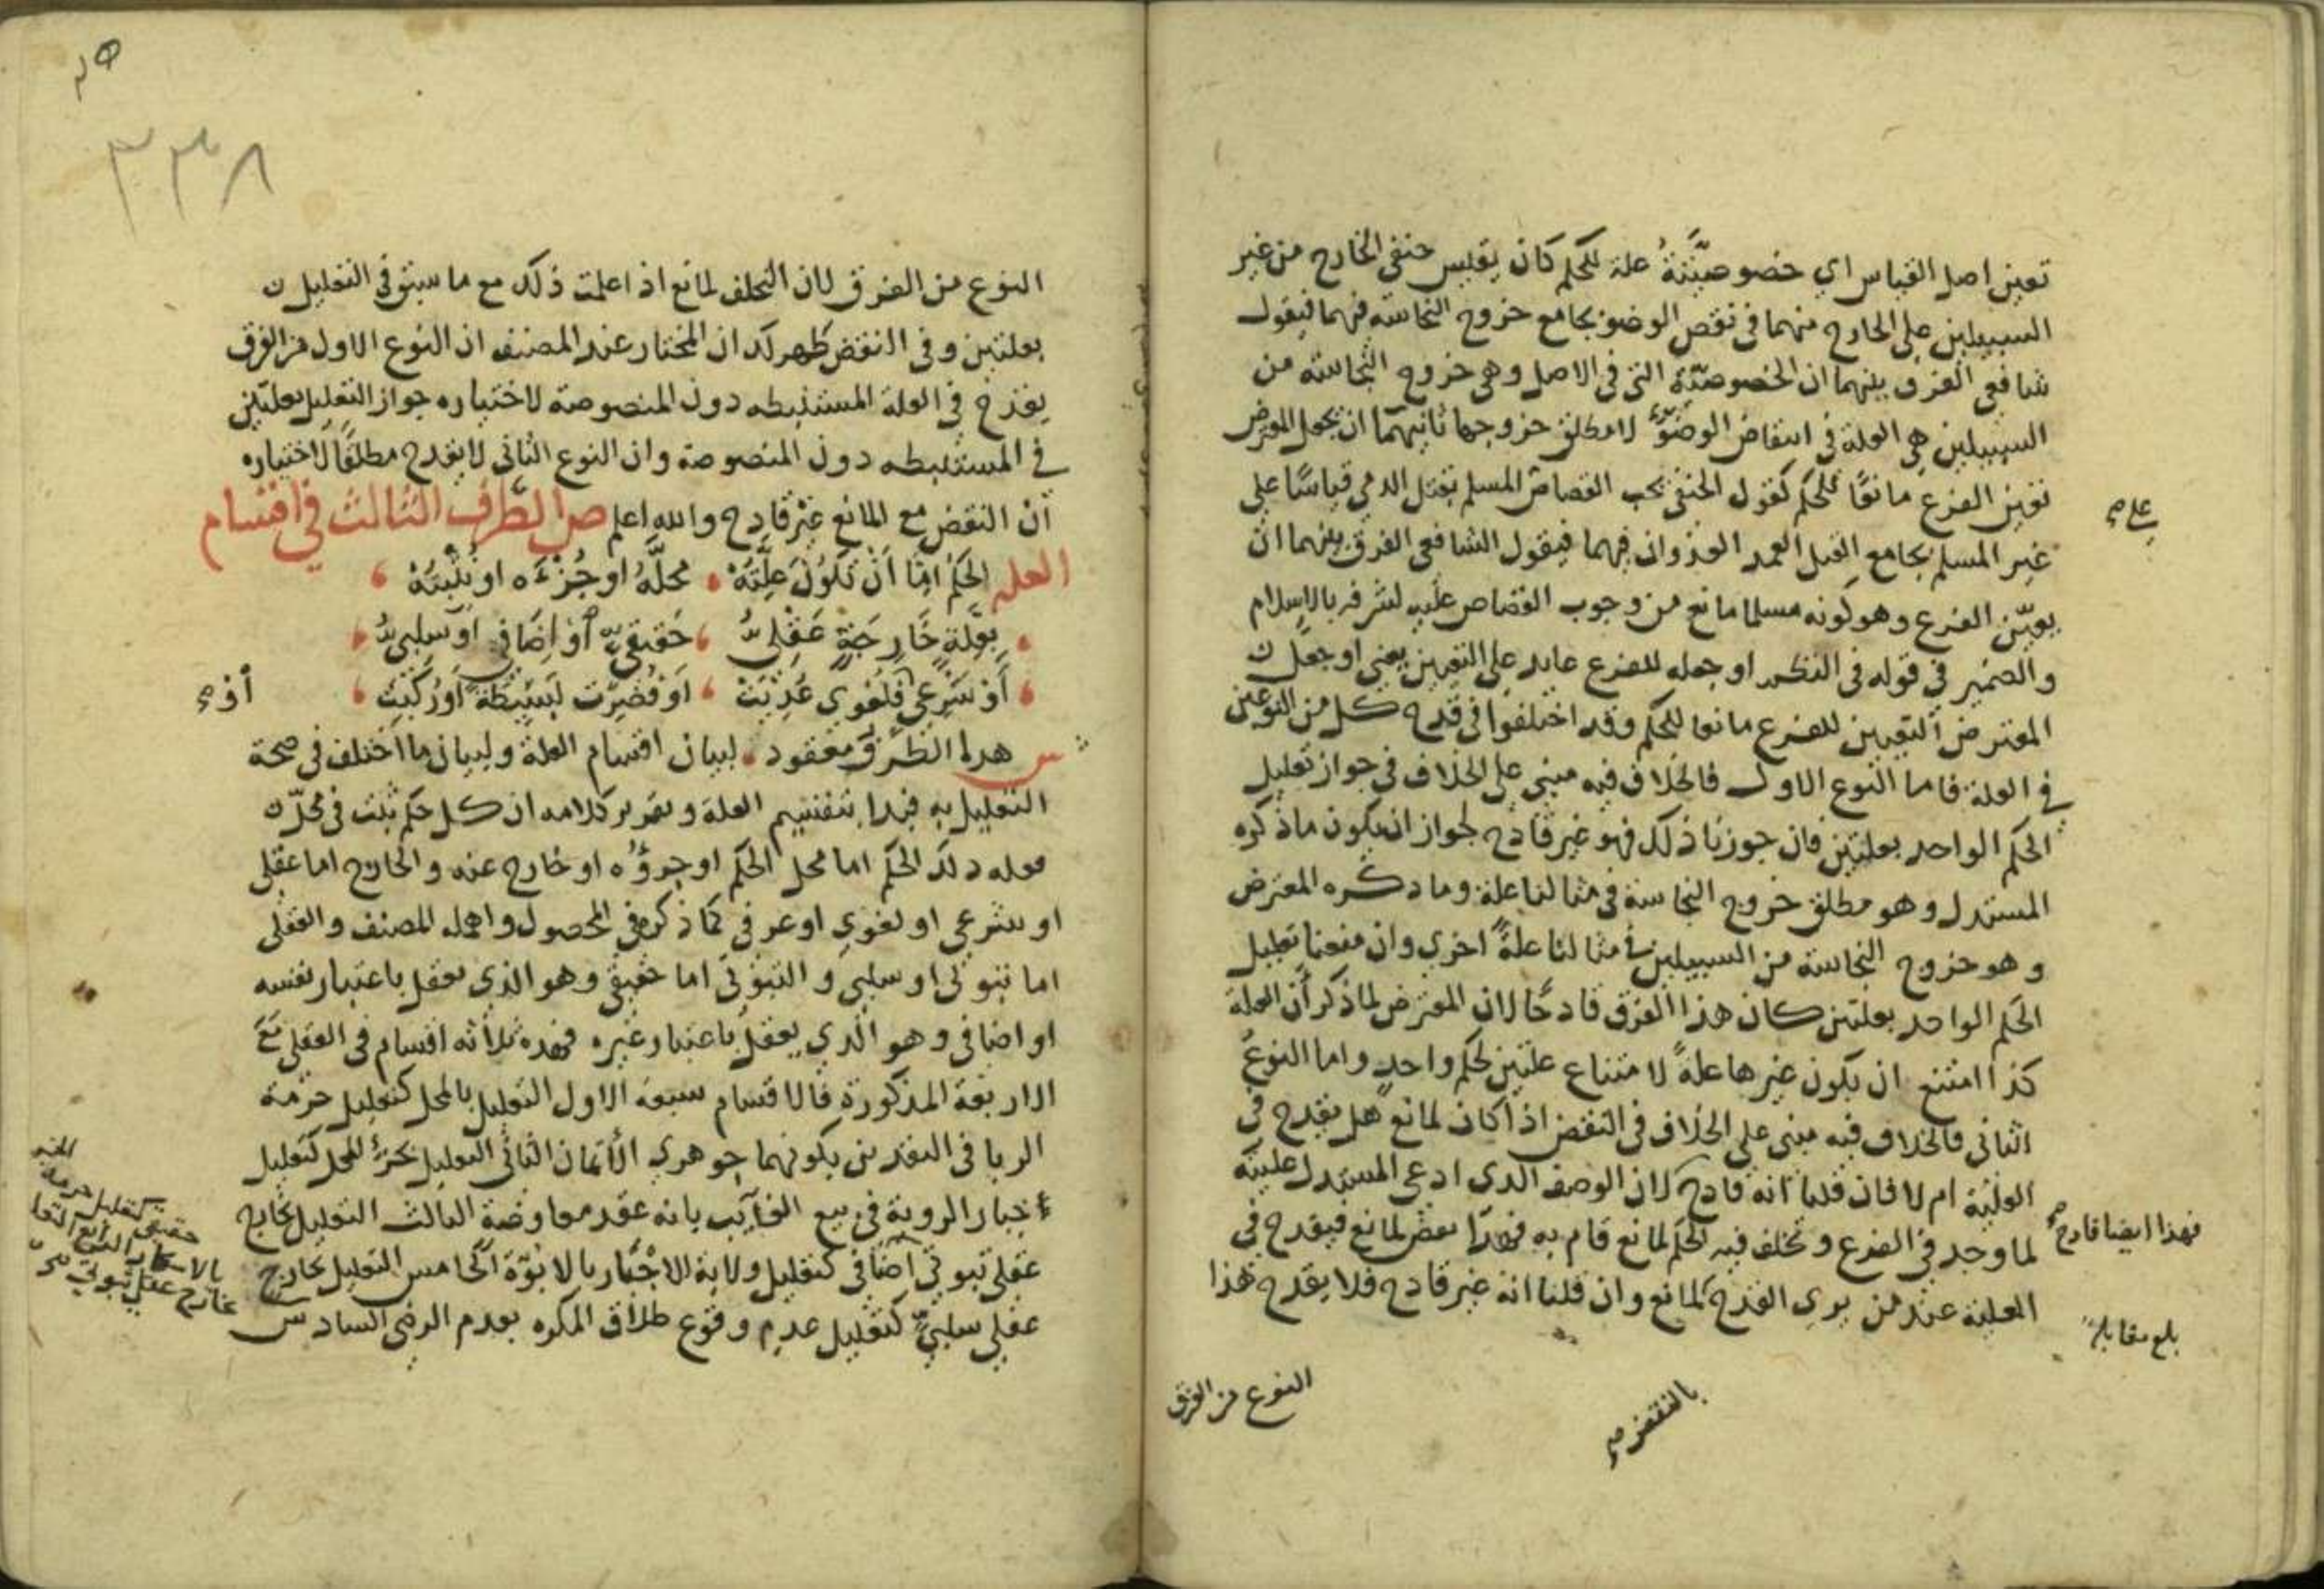 تعين اصل القياس اي خصوصيته علة للحكم كان يقيس حنفي الخارج من غير
السبيلين على الخارج منهما في نقض الوضوء بجامع خروج النجاسة فيهما فيقول
شافعي الفرق بينهما ان الخصوصية التي في الاصل وهي خروج النجاسة من
السبيلين هي العلة في انتقاض الوضوء لا مطلق خروجها ثانيهما ان يجعل المعترض
تعين الفرع مانعا للحكم كقول الحنفي يجب القصاص المسلم بقتل الذمي قياسا على
على
غير المسلم بجامع القتل العمد العدوان فيهما فيقول الشافعي الفرق بينهما ان
بعين الفرع وهو كونه مسلما مانع من وجوب القصاص عليه لشرفه بالاسلام
والضمير في قوله في النظم او جعله للفرع عايد على التعين يعني او جعل
المعترض التعين للفرع مانعا للحكم وقد اختلفوا في قدح كل من النوعين
في العلة فاما النوع الاول فالخلاف فيه مبني على الخلاف في جواز تعليل
الحكم الواحد بعلتين فان جوزنا ذلك فهو غير قادح لجواز ان يكون ما ذكره
المستدل وهو مطلق خروج النجاسة في مثالنا علة وما ذكره المعترض
وهو خروج النجاسة من السبيلين في مثالنا علة اخرى وان منعنا تعليل
الحكم الواحد بعلتين كان هذا الفرق قادحا لان المعترض لما ذكر ان العلة
كذا امتنع ان يكون غيرها علة لامتناع علتين لحكم واحد واما النوع
الثاني فالخلاف فيه مبني على الخلاف في النقض اذا كان لمانع هل يقدح في
العلية ام لا فان قلنا انه قادح لان الوصف الذي ادعى المستدل عليته
فهذا ايضا قادح
لما وجد في الفرع وتخلف فيه الحكم لمانع قام به فهذا نقض لمانع فيقدح في
العلية عند من يرى القدح لمانع وان قلنا انه غير قادح فلا يقدح هذا
بلغ مقابلة
بالنقض
النوع من الفرق
٣٣٨
النوع من الفرق لان التخلف لمانع اذا علمت ذلك مع ما سبق في التعليل
بعلتين وفي النقض ظهر لك ان المختار عند المصنف ان النوع الاول من الفرق
يقدح في العلة المستنبطه دون المنصوصة لاختياره جواز التعليل بعلتين
في المستنبطه دون المنصوصة وان النوع الثاني لا يقدح مطلقا لاختياره
ان النقض مع المانع غير قادح والله اعلم ص الطرف الثالث في اقسام
العلة الحكم اما ان تكون علته محله او جزءه او ثبته
بعلة خارجة عقلي حقيقي او اضافي او سلبي
او شرعي فلغوي عذبت او قصرت بسيطة او ركبت
أو
ش هذا الطرف معقود لبيان اقسام العلة ولبيان ما اختلف في صحة
التعليل به فبدا بتقسيم العلة وتقرير كلامه ان كل حكم ثبت في محل
فعلة ذلك الحكم اما محل الحكم او جزؤه او خارج عنه والخارج اما عقلي
او شرعي او لغوي او عرفي كما ذكره في المحصول واهمله المصنف والعقلي
اما ثبوتي او سلبي والثبوتي اما حقيقي وهو الذي يعقل باعتبار نفسه
او اضافي وهو الذي يعقل باعتبار غيره فهذه ثلاثه اقسام في العقلي مع
الاربعة المذكورة فالاقسام سبعة الاول التعليل بالمحل كتعليل حرمة
الربا في النقدين بكونهما جوهري الاثمان الثاني التعليل بجزء المحل كتعليل
خيار الروية في بيع الغايب بانه عقد معاوضة الثالث التعليل بخارج
حقيقي كتعليل حرمة الخمر
بالاسكار الرابع التعليل
خارج عقلي ثبوتي
عقلي ثبوتي اضافي كتعليل ولاية الاجبار بالابوة الخامس التعليل بخارج
عقلي سلبي كتعليل عدم وقوع طلاق المكره بعدم الرضى السادس